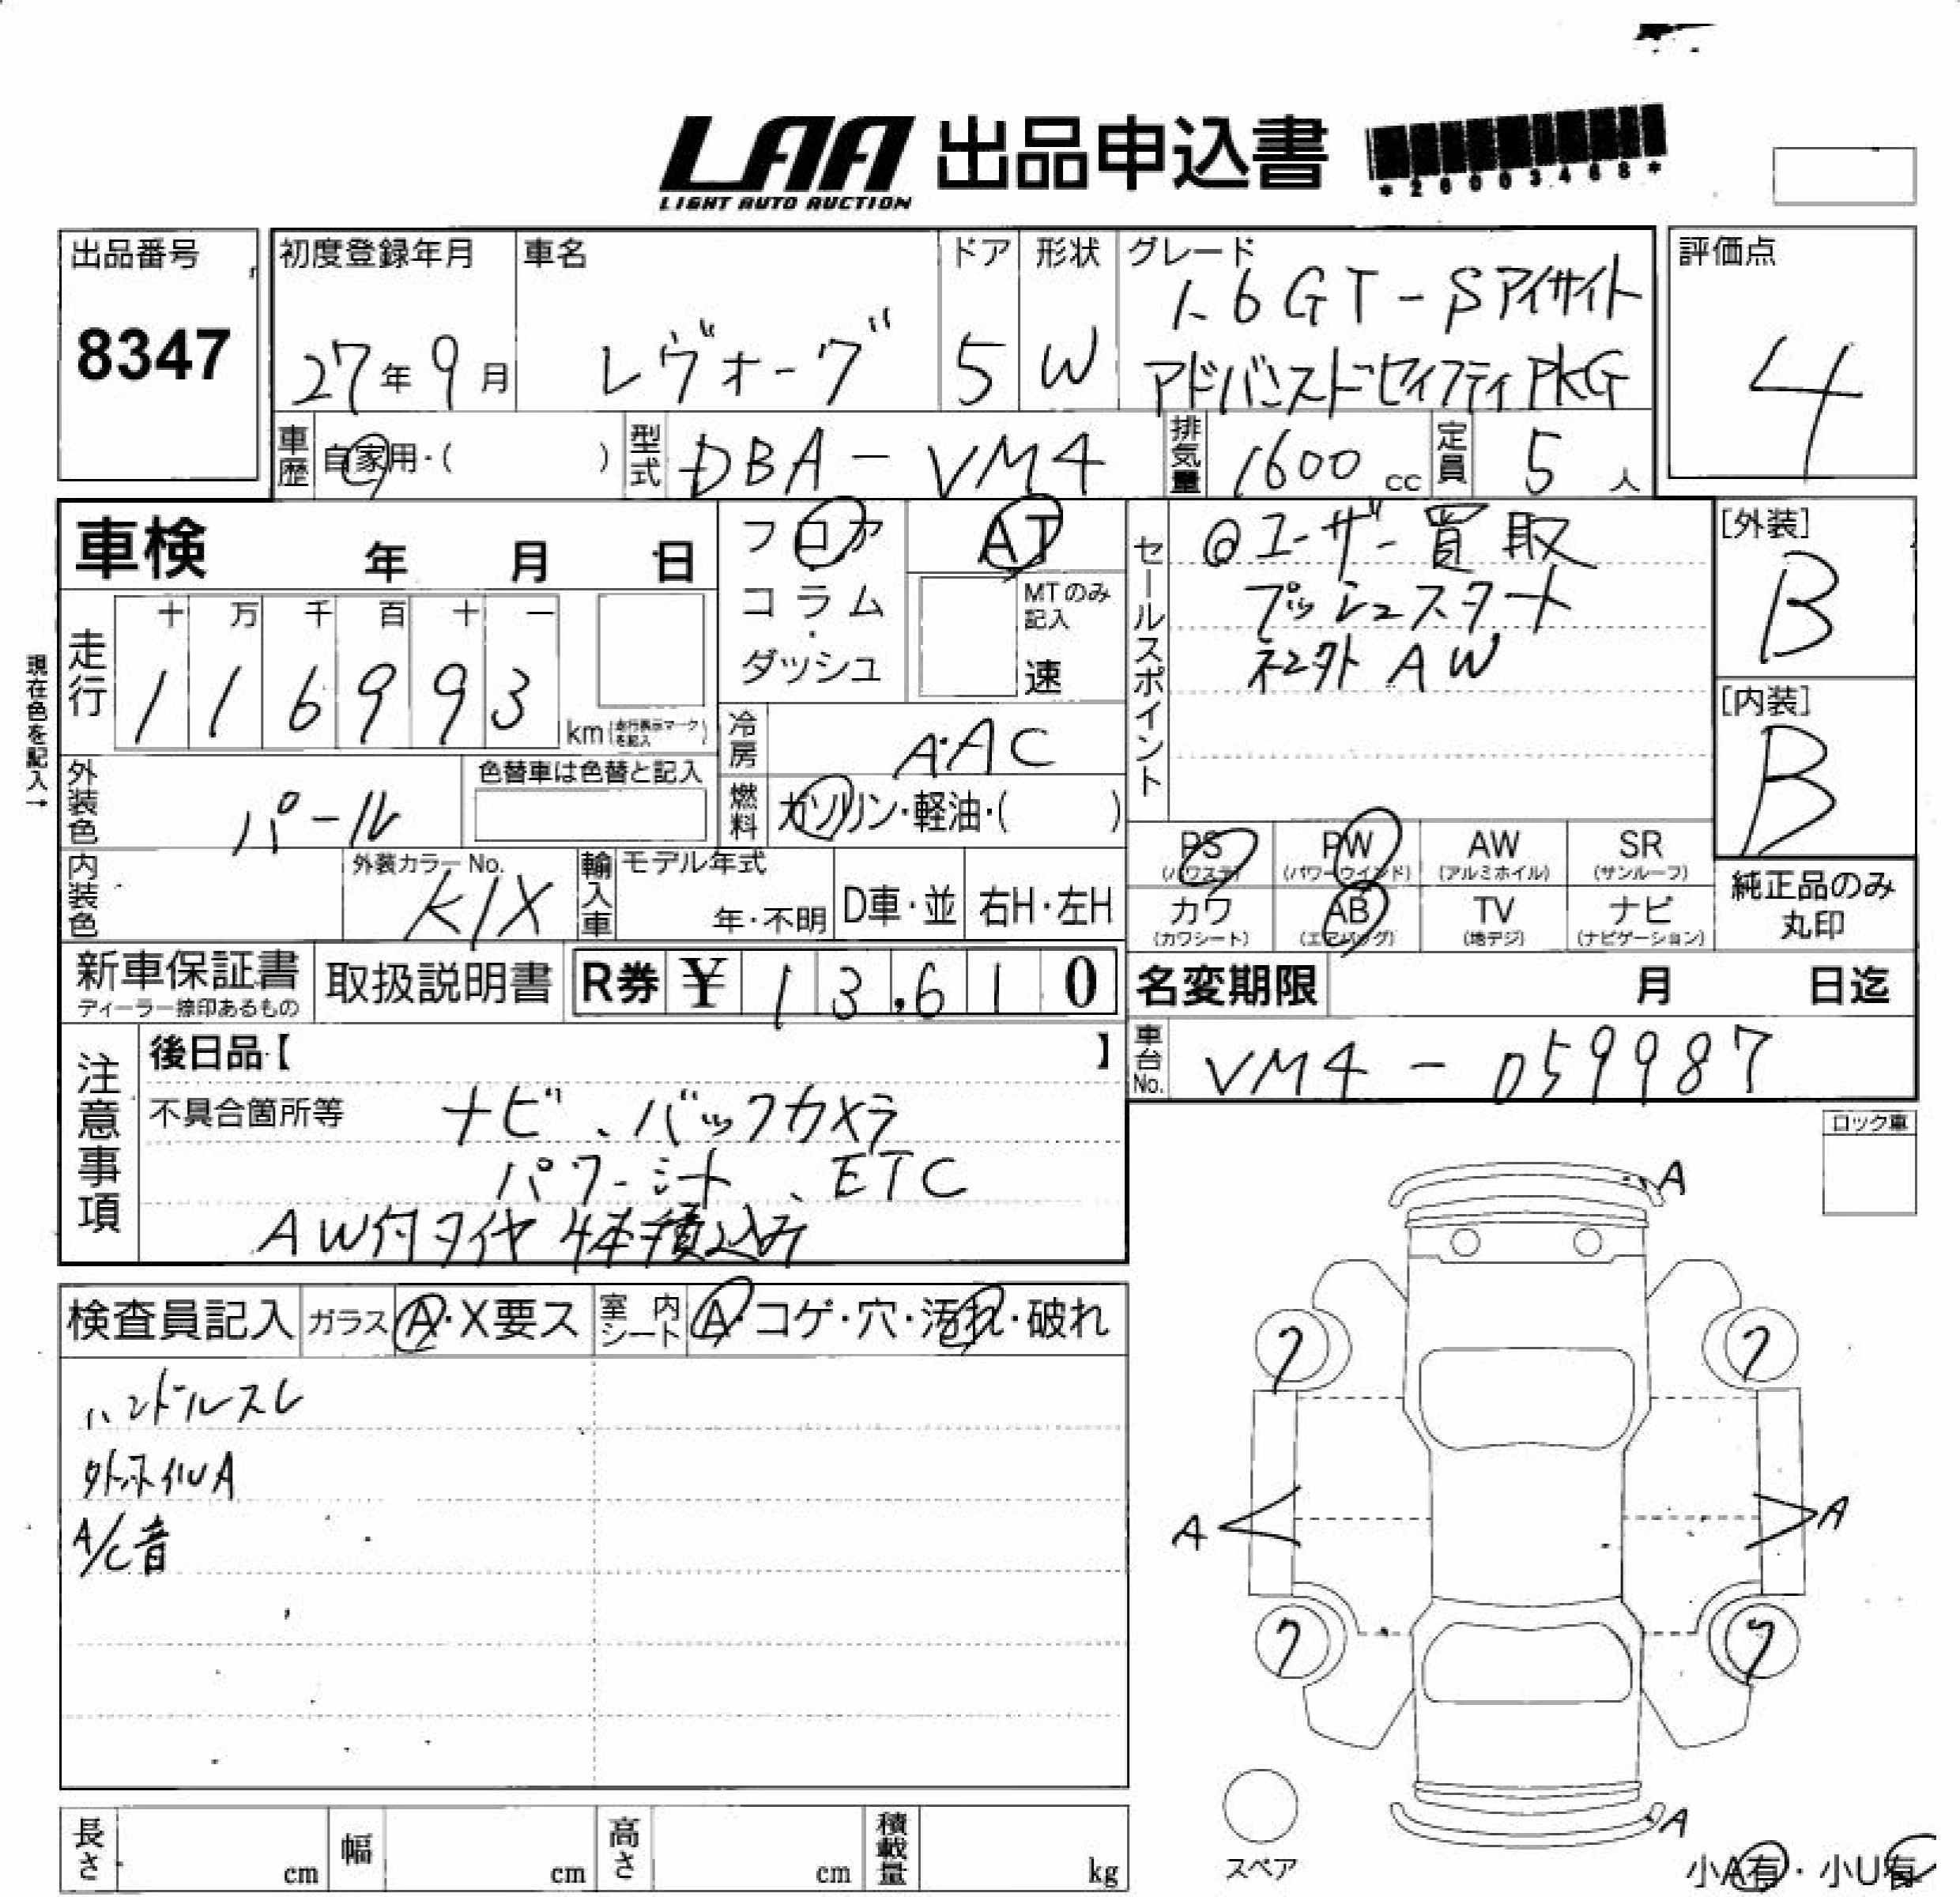 LAA 出品申込書
LIGHT AUTO AUCTION
*26003468*
出品番号
8347
初度登録年月
27年9月
車名
レヴォーグ
ドア
5
形状
W
グレード
1.6GT-Sアイサイト
アドバンスドセイフティPKG
評価点
4
車歴
自家用・( )
型式
DBA-VM4
排気量
1600cc
定員
5人
車検 年 月 日
フロア
コラム
・
ダッシュ
AT
MTのみ
記入
速
セールスポイント
@ユーザー買取
プッシュスタート
社外AW
[外装]
B
[内装]
B
現在色を記入→
走行
十 万 千 百 十 一
1 1 6 9 9 3
km(走行表示マークを記入)
冷房
A・AC
外装色
パール
色替車は色替と記入
燃料
ガソリン・軽油・( )
内装色
外装カラーNo.
K1X
輸入車
モデル年式
年・不明
D車・並
右H・左H
PS
(パワステ)
PW
(パワーウインド)
AW
(アルミホイル)
SR
(サンルーフ)
カワ
(カワシート)
AB
(エアバッグ)
TV
(地デジ)
ナビ
(ナビゲーション)
純正品のみ
丸印
新車保証書
ディーラー捺印あるもの
取扱説明書
R券 ¥ 13,610
名変期限 月 日迄
車台No.
VM4-059987
注意事項
後日品【 】
不具合箇所等
ナビ、バックカメラ
パワーシート、ETC
AW付タイヤ4本積込み
ロック車
検査員記入
ガラス
A・X要ス
室内シート
A・コゲ・穴・汚れ・破れ
ハンドルスレ
外ホイルA
A/C音
A
7
7
A
A
7
7
A
スペア
小A有・小U有
長さ
cm
幅
cm
高さ
cm
積載量
kg